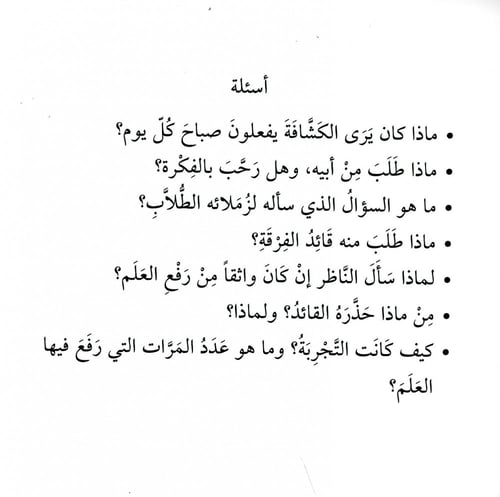 أسئلة
• ماذا كان يَرَى الكَشَّافَةَ يفعلونَ صباحَ كُلّ يوم؟
• ماذا طَلَبَ مِنْ أبيه، وهل رَحَّبَ بالفِكْرة؟
• ما هو السؤالُ الذي سأله لزُمَلائه الطُّلاَّبِ؟
• ماذا طَلَبَ منه قَائِدُ الفِرْقَةِ؟
• لماذا سَأَلَ النَّاظر إنْ كَانَ واثقاً مِنْ رَفْعِ العَلَم؟
• مِنْ ماذا حَذَّرَهُ القائدُ؟ ولماذا؟
• كيف كَانَت التَّجْرِبَةُ؟ وما هو عَدَدُ المَرَّات التي رَفَعَ فيها
العَلَمَ؟